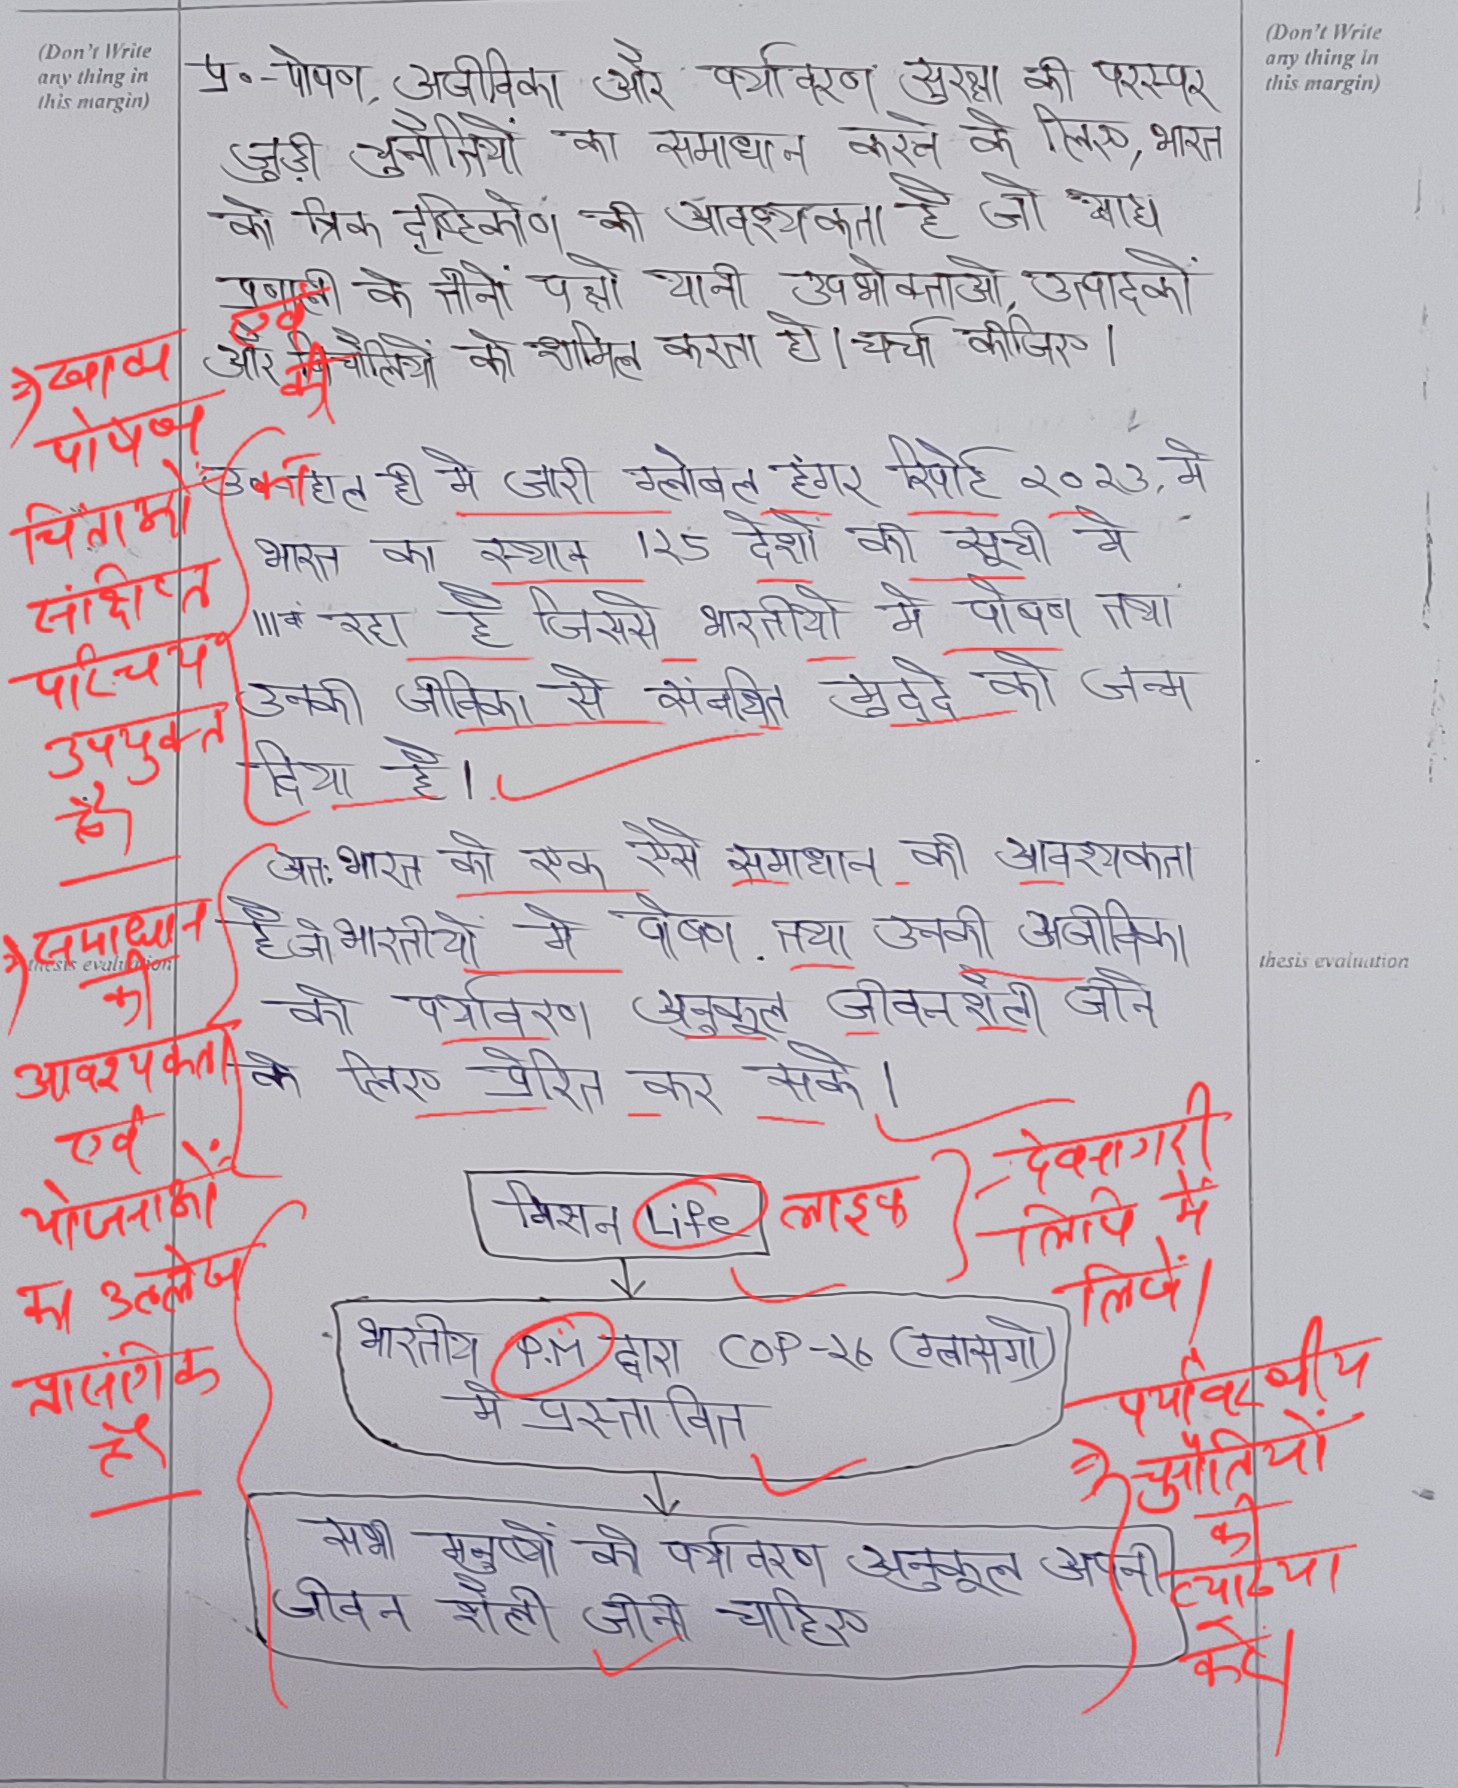 (Don't Write
any thing in
this margin)
(Don't Write
any thing in
this margin)
प्र०-पोषण, अजीविका और पर्यावरण सुरक्षा की परस्पर
जुड़ी चुनौतियों का समाधान करने के लिए, भारत
को त्रिक दृष्टिकोण की आवश्यकता है जो खाद्य
प्रणाली के तीनों पक्षो यानी उपभोक्ताओ, उत्पादकों
और बिचौलियों को शामिल करता हो। चर्चा कीजिए।
⇒ खाद्य एवं
पोषण की
चिंताओं
संक्षिप्त
परिचय
उपयुक्त
है।
हाल ही मे जारी ग्लोबल हंगर रिपोर्ट २०२३, मे
भारत का स्थान 125 देशों की सूची मे
111वां रहा है जिससे भारतीयो मे पोषण तथा
उनकी जीविका से संबंधित मुद्दे को जन्म
दिया है।
अत: भारत को एक ऐसे समाधान की आवश्यकता
है जो भारतीयों मे पोषण तथा उनकी अजीविका
को पर्यावरण अनुकूल जीवनशैली जीने
के लिए प्रेरित कर सके।
⇒ समाधान
की
आवश्यकता
एवं
योजनाओं
का उल्लेख
प्रासंगिक
है।
thesis evaluation
thesis evaluation
मिशन Life लाइफ
- देवनागरी
लिपि में
लिखें।
भारतीय P.M द्वारा COP-26 (ग्लासगो)
मे प्रस्तावित
सभी मनुष्यों को पर्यावरण अनुकूल अपनी
जीवन शैली जीनी चाहिए
पर्यावरणीय
⇒ चुनौतियों
की
व्याख्या
करें।